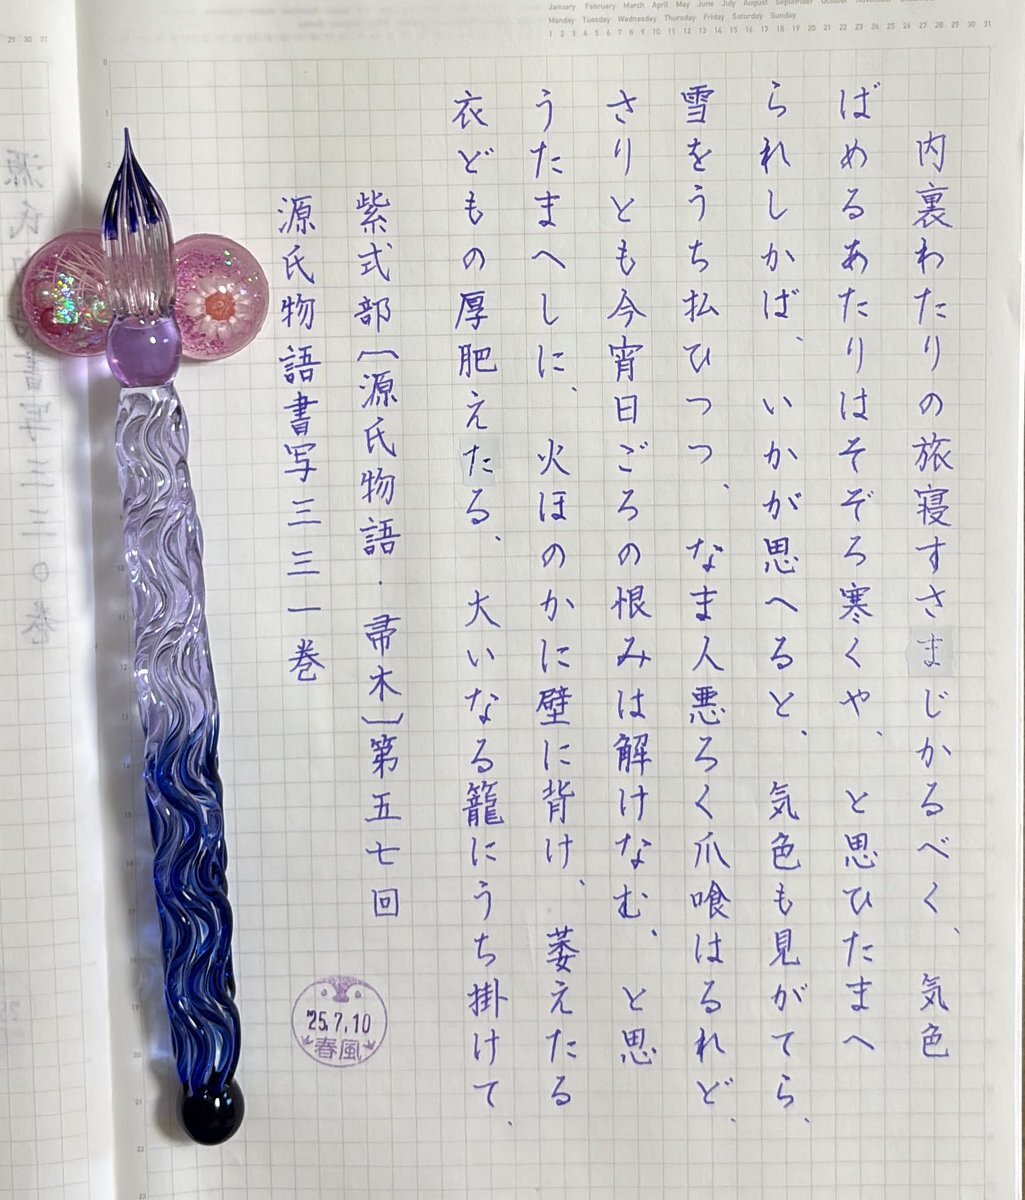 January February March April May June July August September October November
Monday Tuesday Wednesday Thursday Friday Saturday Sunday
1 2 3 4 5 6 7 8 9 10 11 12 13 14 15 16 17 18 19 20 21 22 23 24 25 26 27 28 29 30 31
29 30 31
内裏わたりの旅寝すさまじかるべく、気色
ばめるあたりはそぞろ寒くや、と思ひたまへ
られしかば、いかが思へると、気色も見がてら、
雪をうち払ひつつ、なま人悪ろく爪喰はるれど、
さりとも今宵日ごろの恨みは解けなむ、と思
うたまへしに、火ほのかに壁に背け、萎えたる
衣どもの厚肥えたる、大いなる籠にうち掛けて、
紫式部〔源氏物語・帚木〕第五七回
源氏物語書写三三一巻
'25.7.10
春風